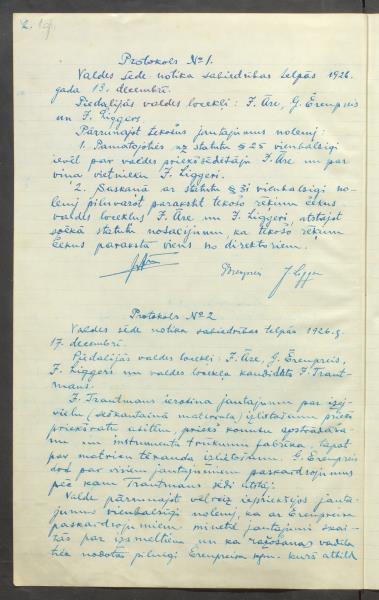 Protokols № 1.
Valdes sēde notika sabiedrības telpās 1926.
gada 13. decembrī.
Piedalījās valdes locekļi: F. Āre, G. Ērenpreis
un J. Liggers.
Pārrunājot tekošus jautājumus nolemj:
1. Pamatojoties uz statutu § 25 vienbalsīgi
ievēl par valdes priekšsēdētāju F. Āre un par
viņa vietnieku J. Liggeri.
2. Saskaņā ar statutu § 31 vienbalsīgi no-
lemj pilnvarot parakstīt tekošo rēķinu čekus
valdes locekļus F. Āre un J. Liggeri, atstājot
spēkā statutu nosacījumu, ka tekošo rēķinu
čekus paraksta viens no direktoriem.
Ērenpreis J. Ligger
Protokols № 2
Valdes sēde notika sabiedrības telpās 1926. g.
17. decembrī.
Piedalījās valdes locekļi: F. Āre, G. Ērenpreis,
J. Liggers un valdes locekļa kandidāts F. Traut-
mans.
F. Trautmans ierosina jautājumu par izej-
vielu (
priekšratu
un instrumentu trūkumu fabrikā, tāpat
par G. Ērenpreis
dod par visiem jautājumiem paskaidrojumus
pēc kam Trautmans sēdi atstāj.
Valde pārrunājot vēlreiz iepriekšējos jauta-
jumus vienbalsīgi nolemj, ka ar Ērenpreisa
paskaidrojumiem minētie jautājumi skai-
tās par izsmeltiem un ka ražošanas vadība
tiek nodota pilnīgi Ērenpreisa kgm. kurš atbild